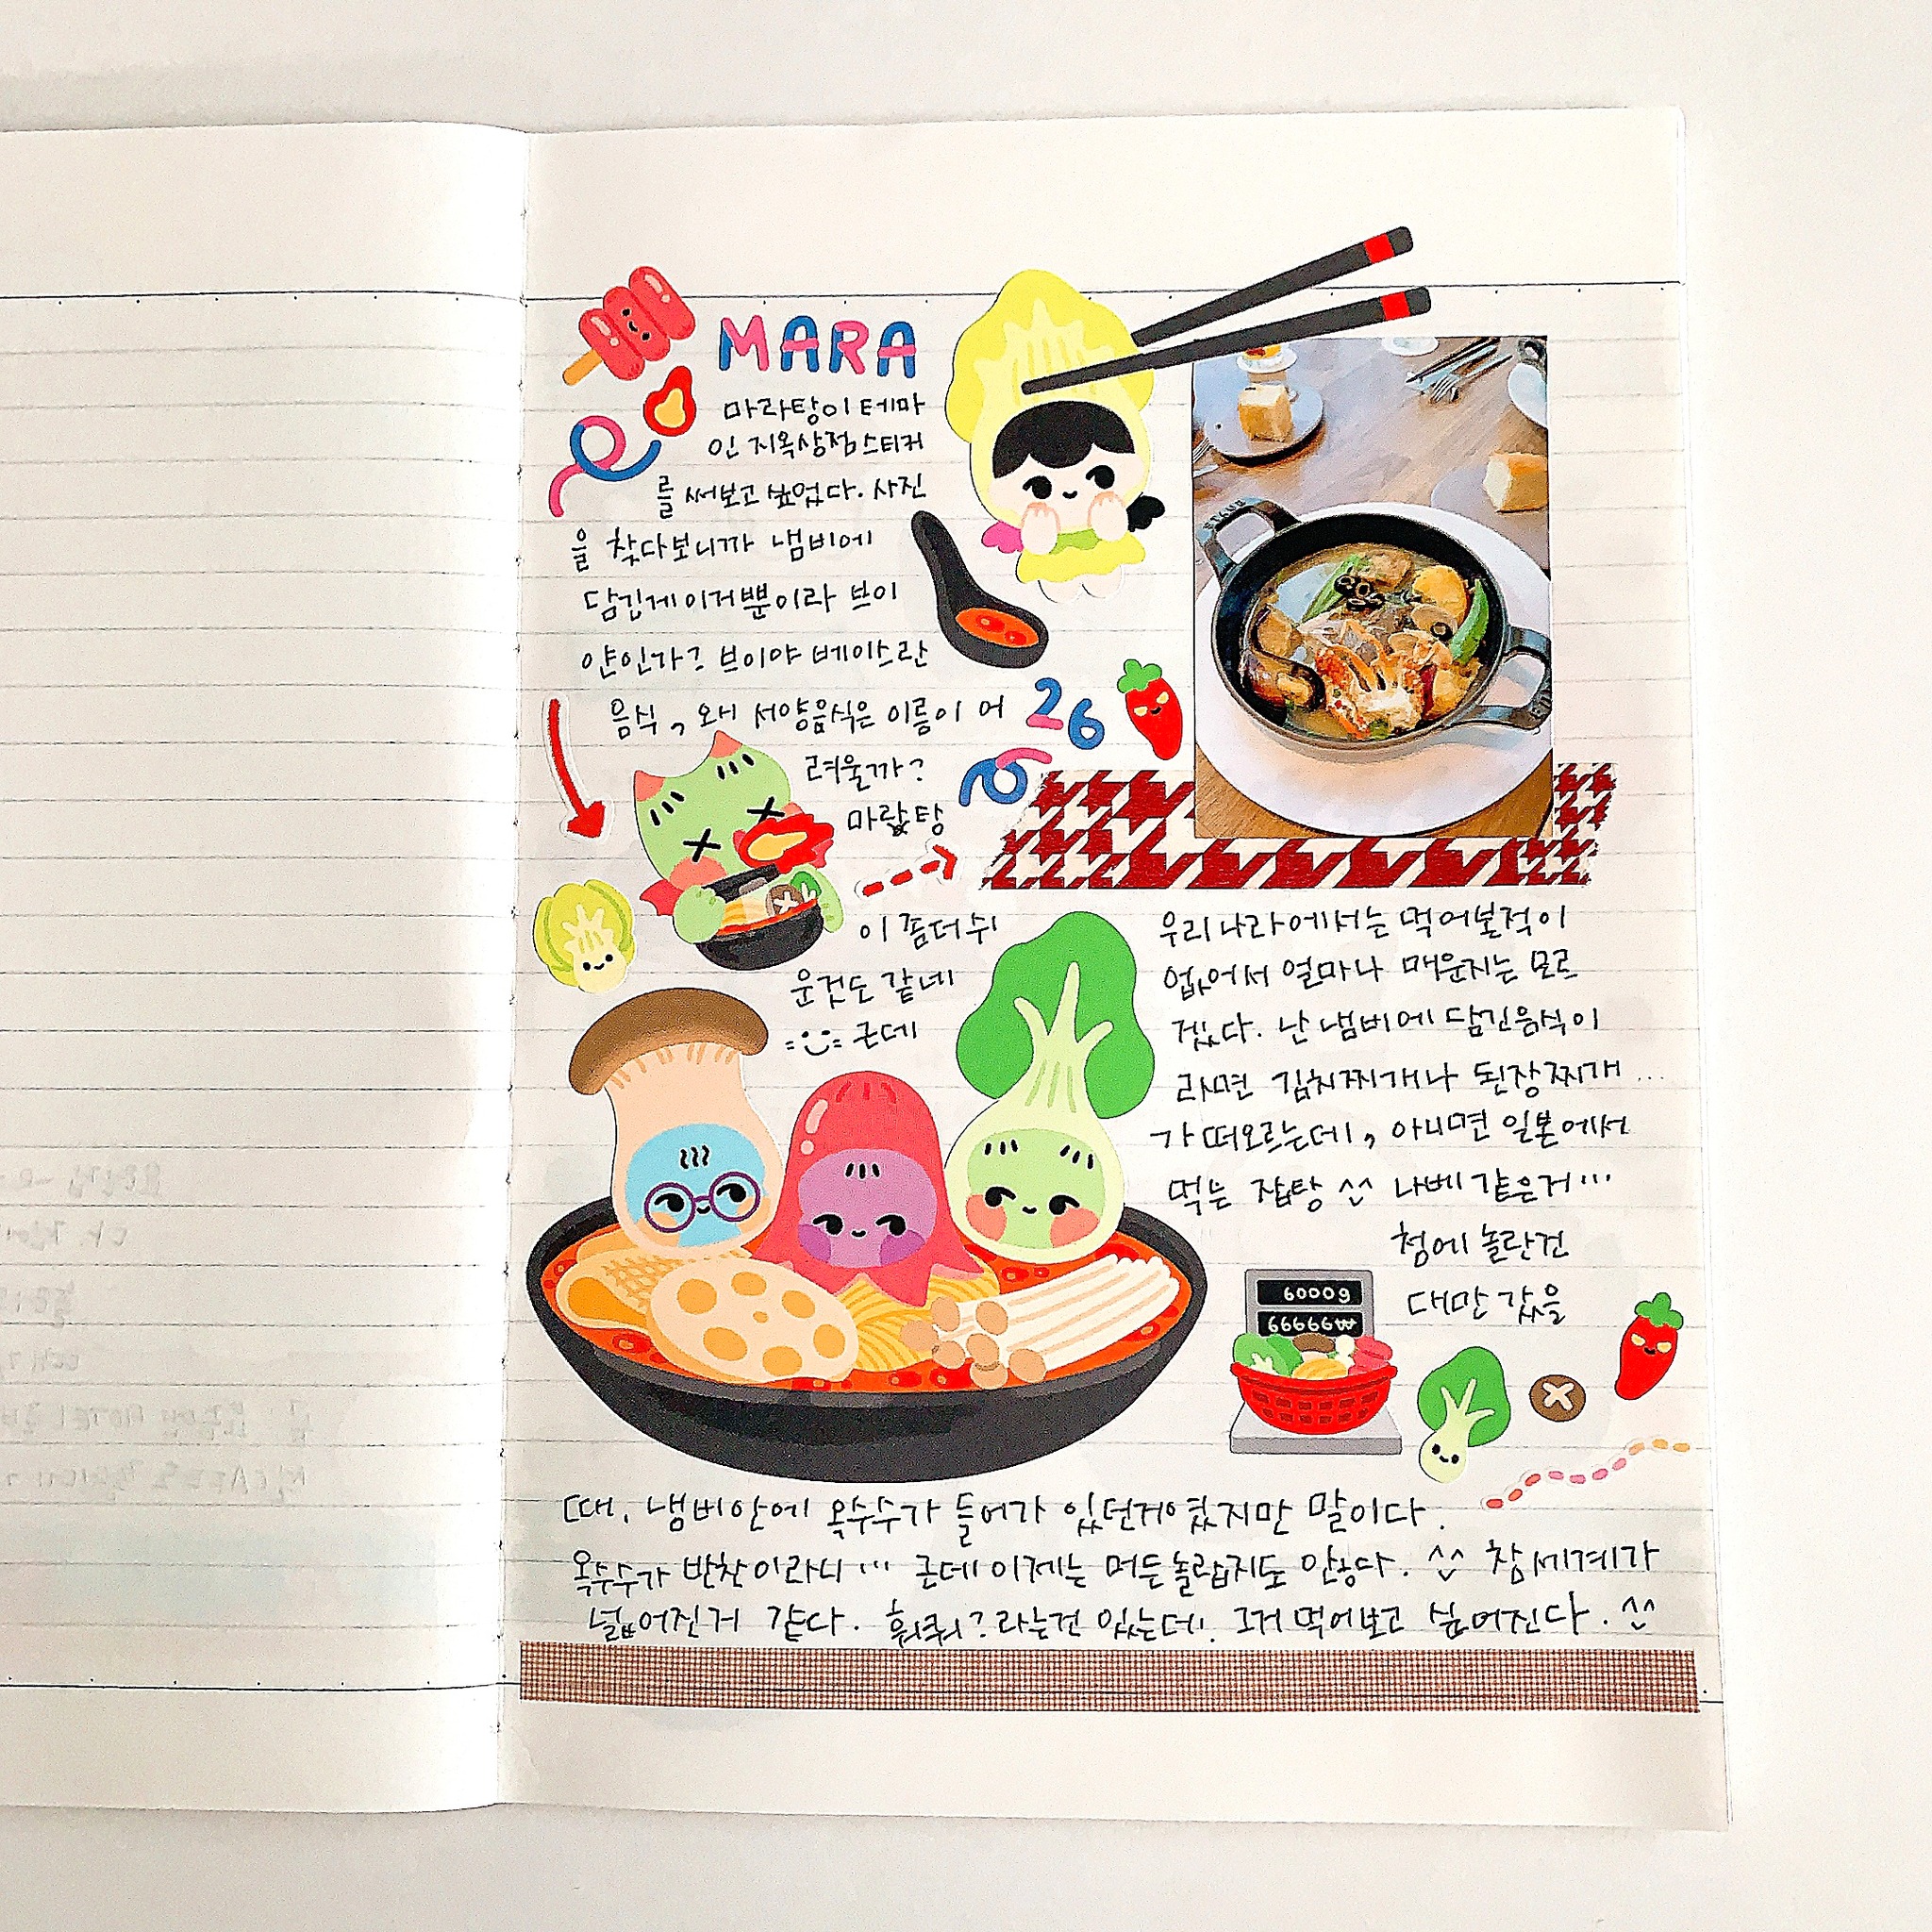 MARA
마라탕이 테마
인 지옥상점스티커
를 써보고 싶었다. 사진
을 찾다보니까 냄비에
담긴게 이거뿐이라 브이
얀인가? 브이야 베이스란
음식, 왜 서양음식은 이름이 어
려울까?
26
마랖탕
이 좀더 쉬
운것도 같네
근데
우리나라에서는 먹어본적이
없어서 얼마나 매운지는 모르
겠다. 난 냄비에 담긴음식이
라면 김치찌개나 된장찌개...
가 떠오르는데, 아니면 일본에서
먹는 잡탕 ^^ 나베 같은거...
첨에 놀란건
대만 갔을
6000g
66666₩
때, 냄비안에 옥수수가 들어가 있던거였지만 말이다.
옥수수가 반찬이라니... 근데 이제는 머든 놀랍지도 않다. ^^ 참 세계가
넓어진거 같다. 훠쿼?라는건 있는데! 그거 먹어보고 싶어진다. ^^